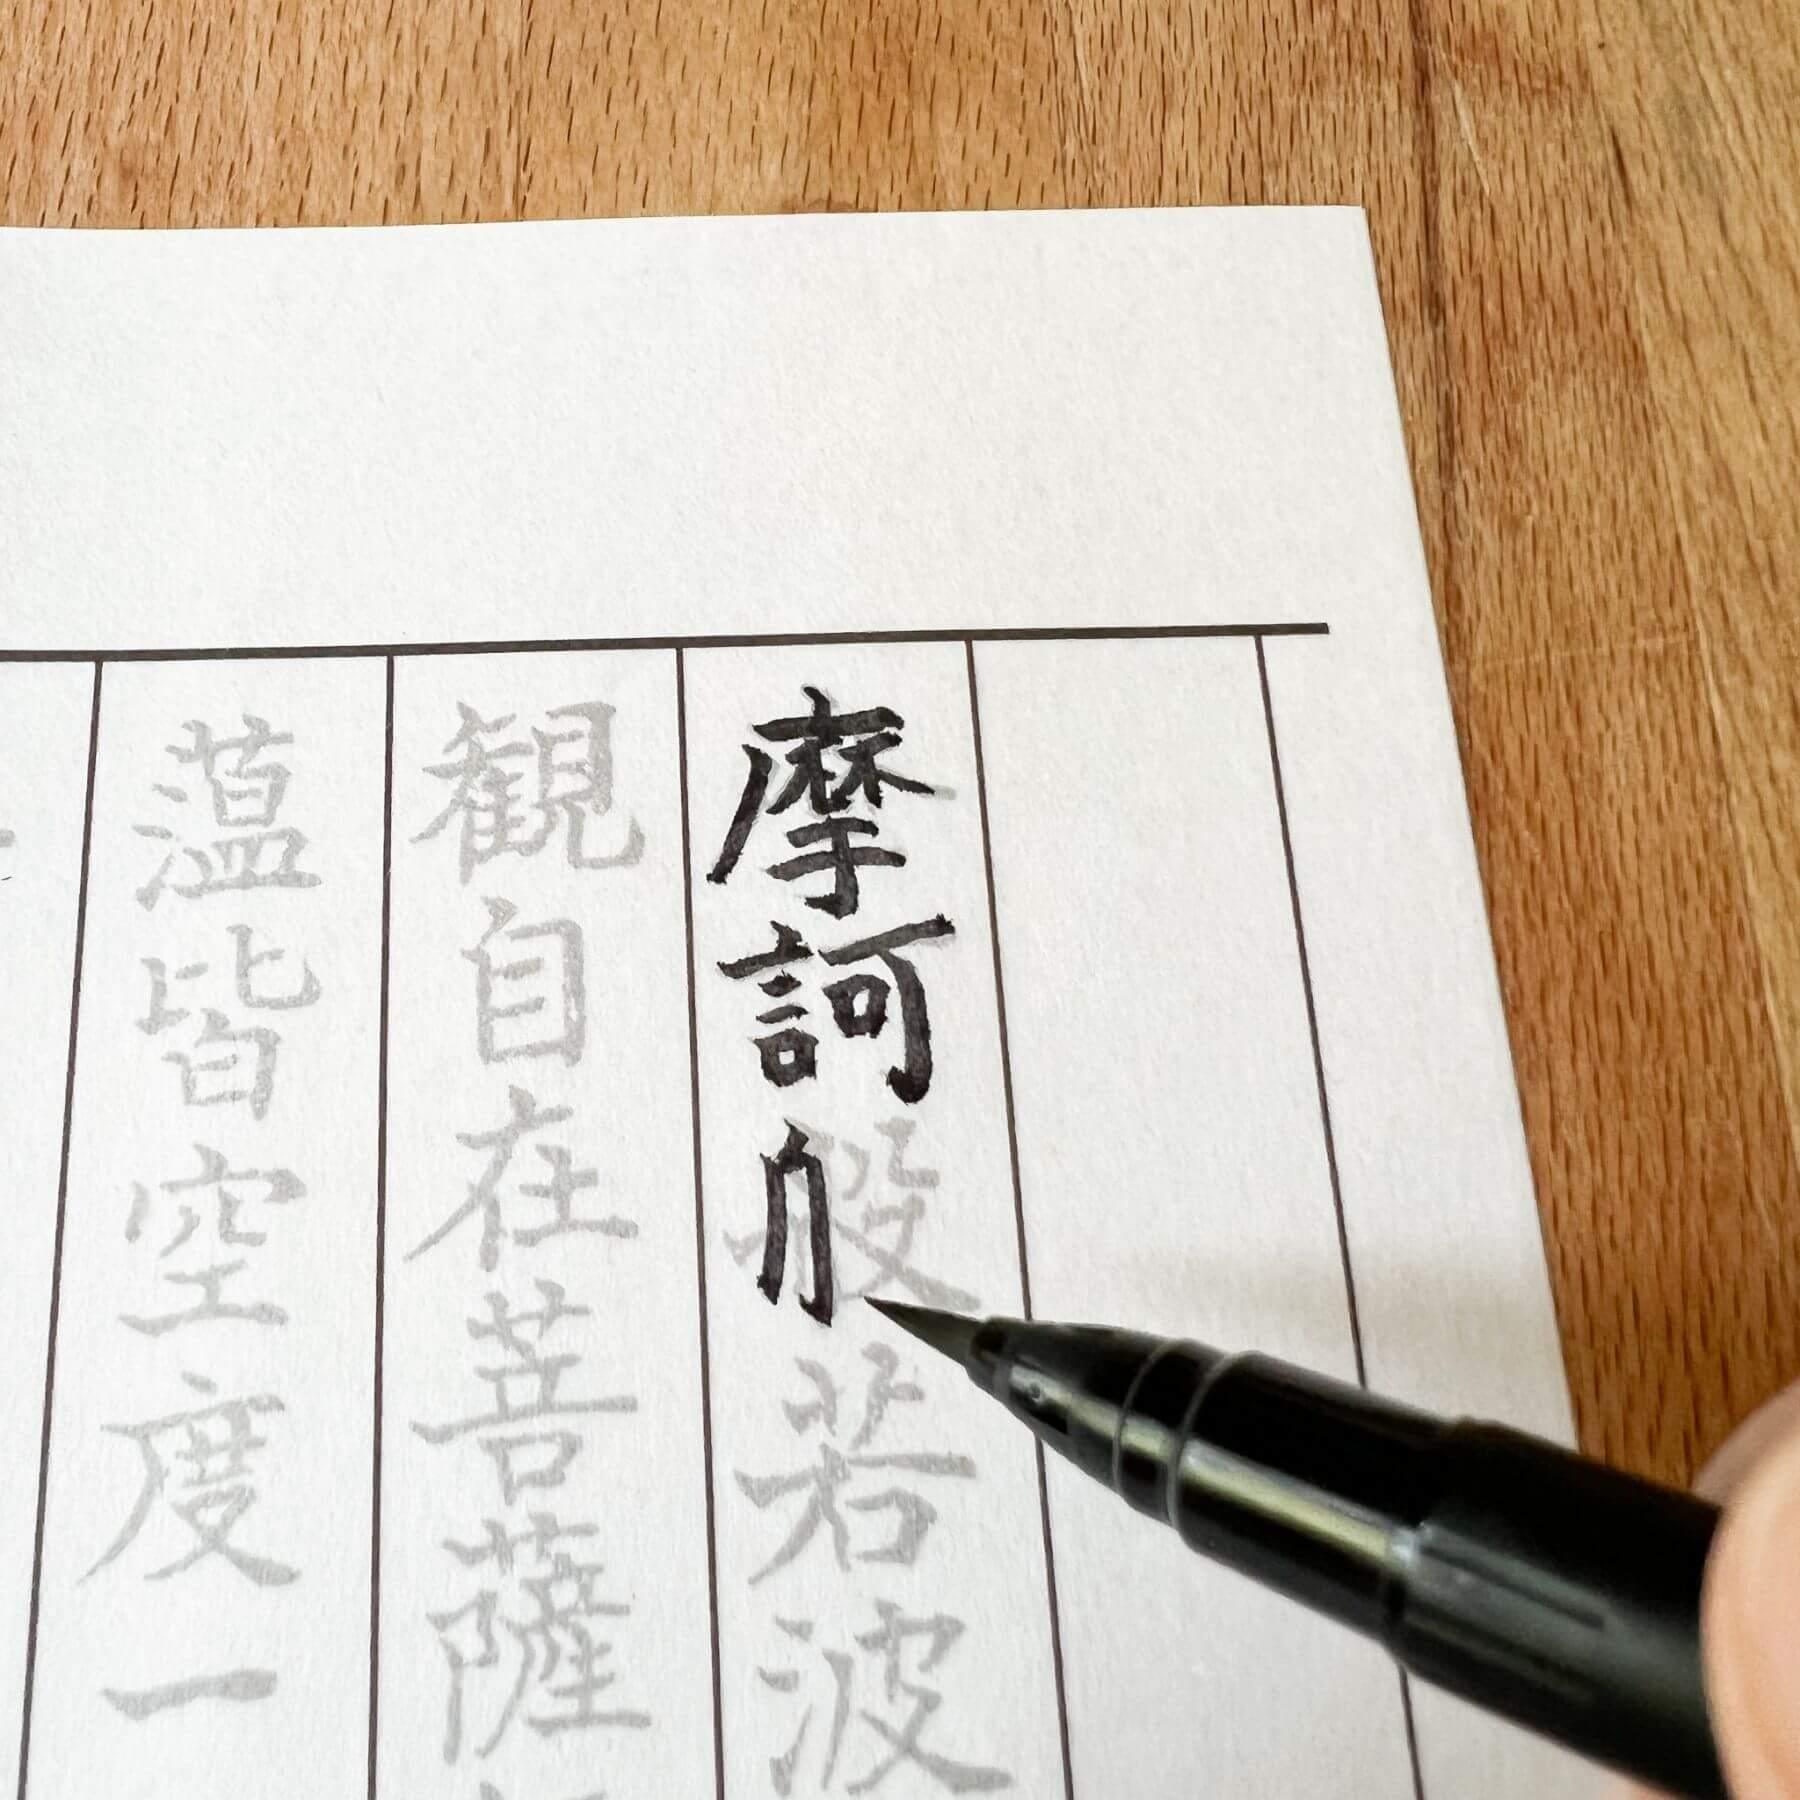 摩訶般若波
観自在菩薩
蕰皆空度一